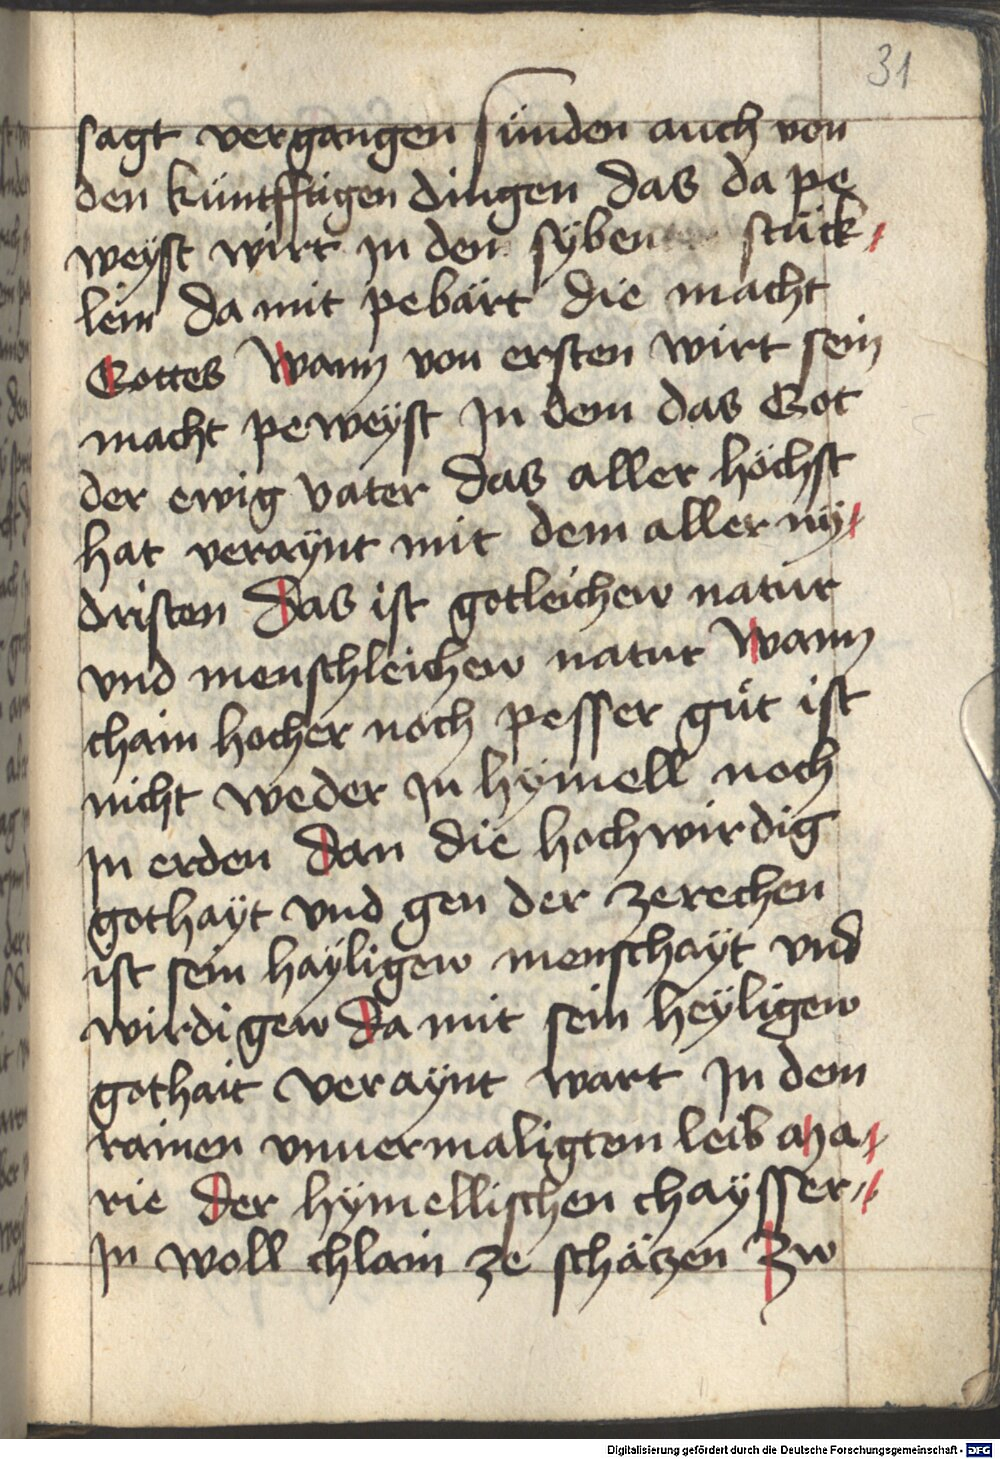 31
sagt vergangen sünden auch von
den küntfftigen dingen das da pe
weyst wirt jn den syben stück⸗
lein da mit pebärt die macht
Gottes Wann von ersten wirt sein
macht peweyst jn dem das Got
der ewig vater das aller höchst
hat veraynt mit dem aller ny⸗
dristen Das ist gotleichew natur
vnd menschleichew natur Wann
chain hocher noch pesser güt ist
nicht weder jn hymell noch
jn erden Dan die hochwirdig
gothayt vnd gen der zerechen
ist sein hayligew menschayt vnd
wirdigew Da mit sein heyligew
gothait veraynt wart jn dem
rainen vnuermaligten leib Ma⸗
rie Der hymellischen chaysser⸗
jn woll chlain ze schätzen Zw
Digitalisierung gefördert durch die Deutsche Forschungsgemeinschaft - DFG